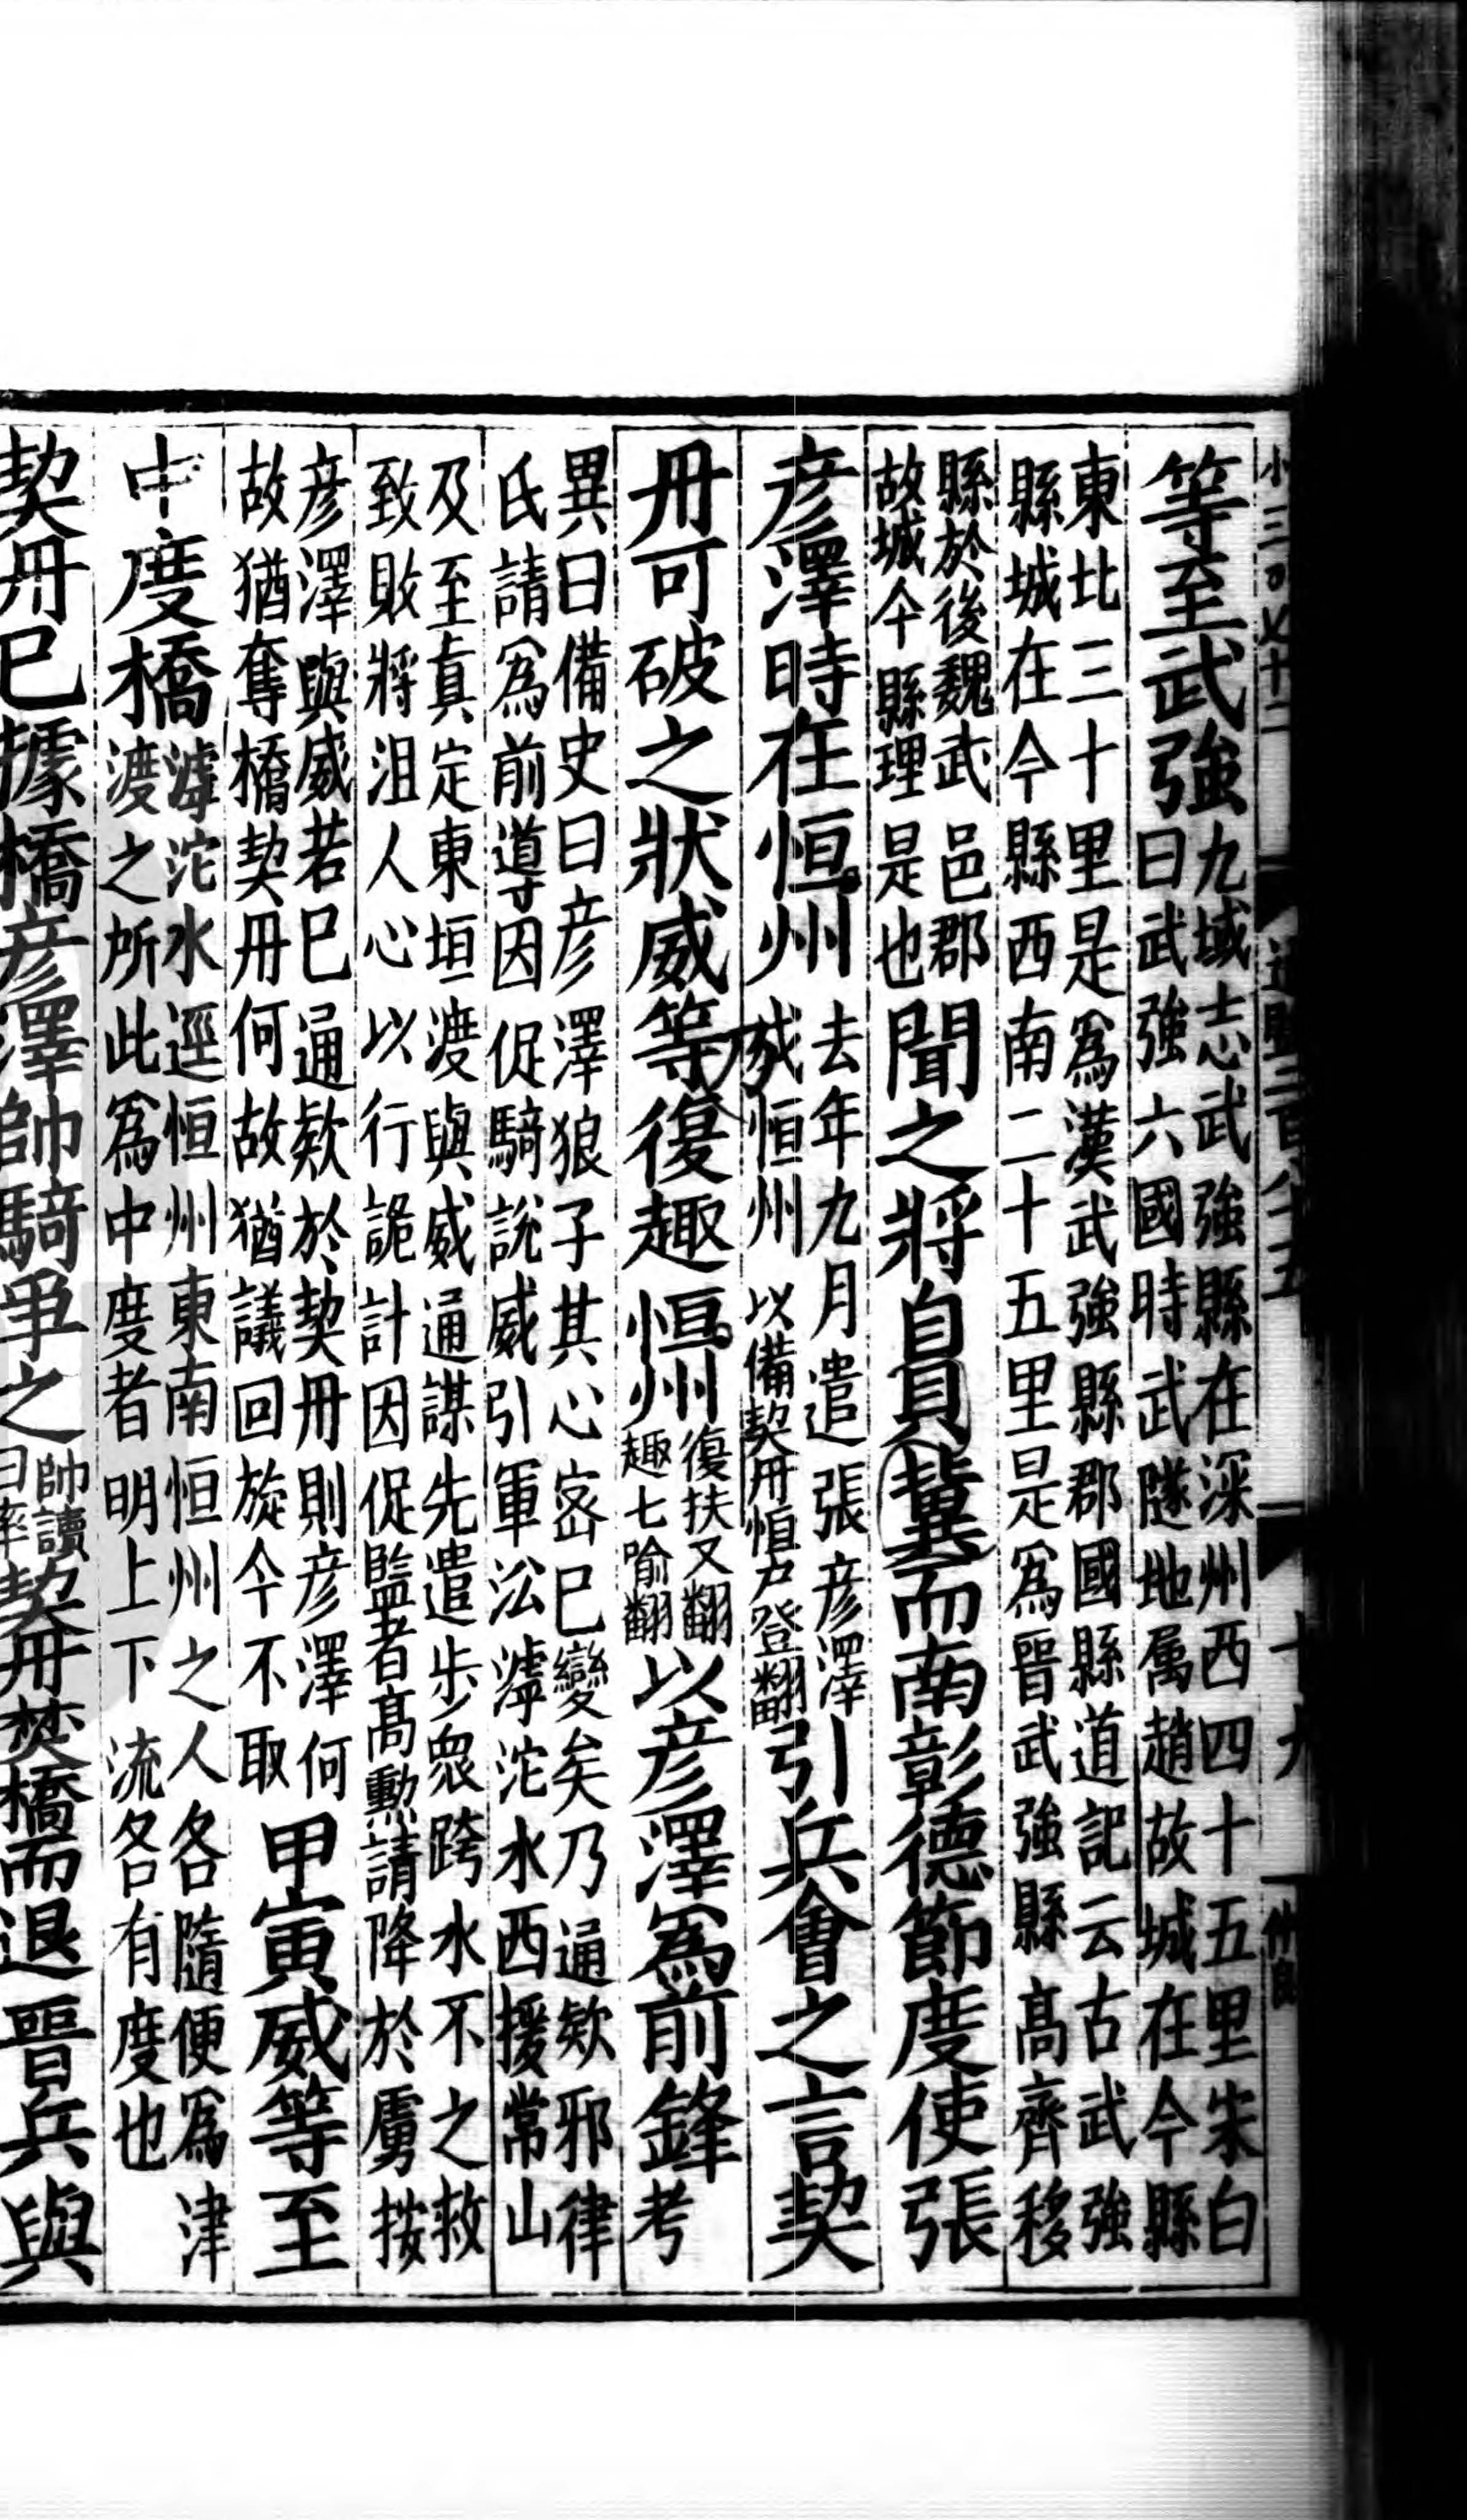 通鑑二百八十五 十九
等至武強九域志武強縣在深州西四十五里宋白曰武強六國時武隧地属趙故城在今縣
東北三十里是爲漢武強縣郡國縣道記云古武強縣城在今縣西南二十五里是爲晉武強縣高齊移
縣於後魏武邑郡故城今縣理是也聞之將自貝冀而南彰德節度使張
彦澤時在恒州去年九月遣張彦澤戍恒州以備契丹恒户登翻引兵會之言契
丹可破之狀威等復趣恒州復扶又翻趣七喻翻以彦澤爲前鋒考
異曰備史曰彦澤狼子其心密已變矣乃通欵邪律氏請爲前導因促騎說威引軍沿滹沱水西援常山
及至真定東垣渡與威通謀先遣步衆跨水不之救致敗將沮人心以行詭計因促監者高勲請降於虜按
彦澤與威若已通欵於契丹則彦澤何故猶奪橋契丹何故猶議回旋今不取甲寅威等至
中度橋滹沱水逕恒州東南恒州之人各隨便爲津渡之所此爲中度者明上下流各有度也
契丹已據橋彦澤帥騎爭之帥讀曰率契丹焚橋而退晉兵與